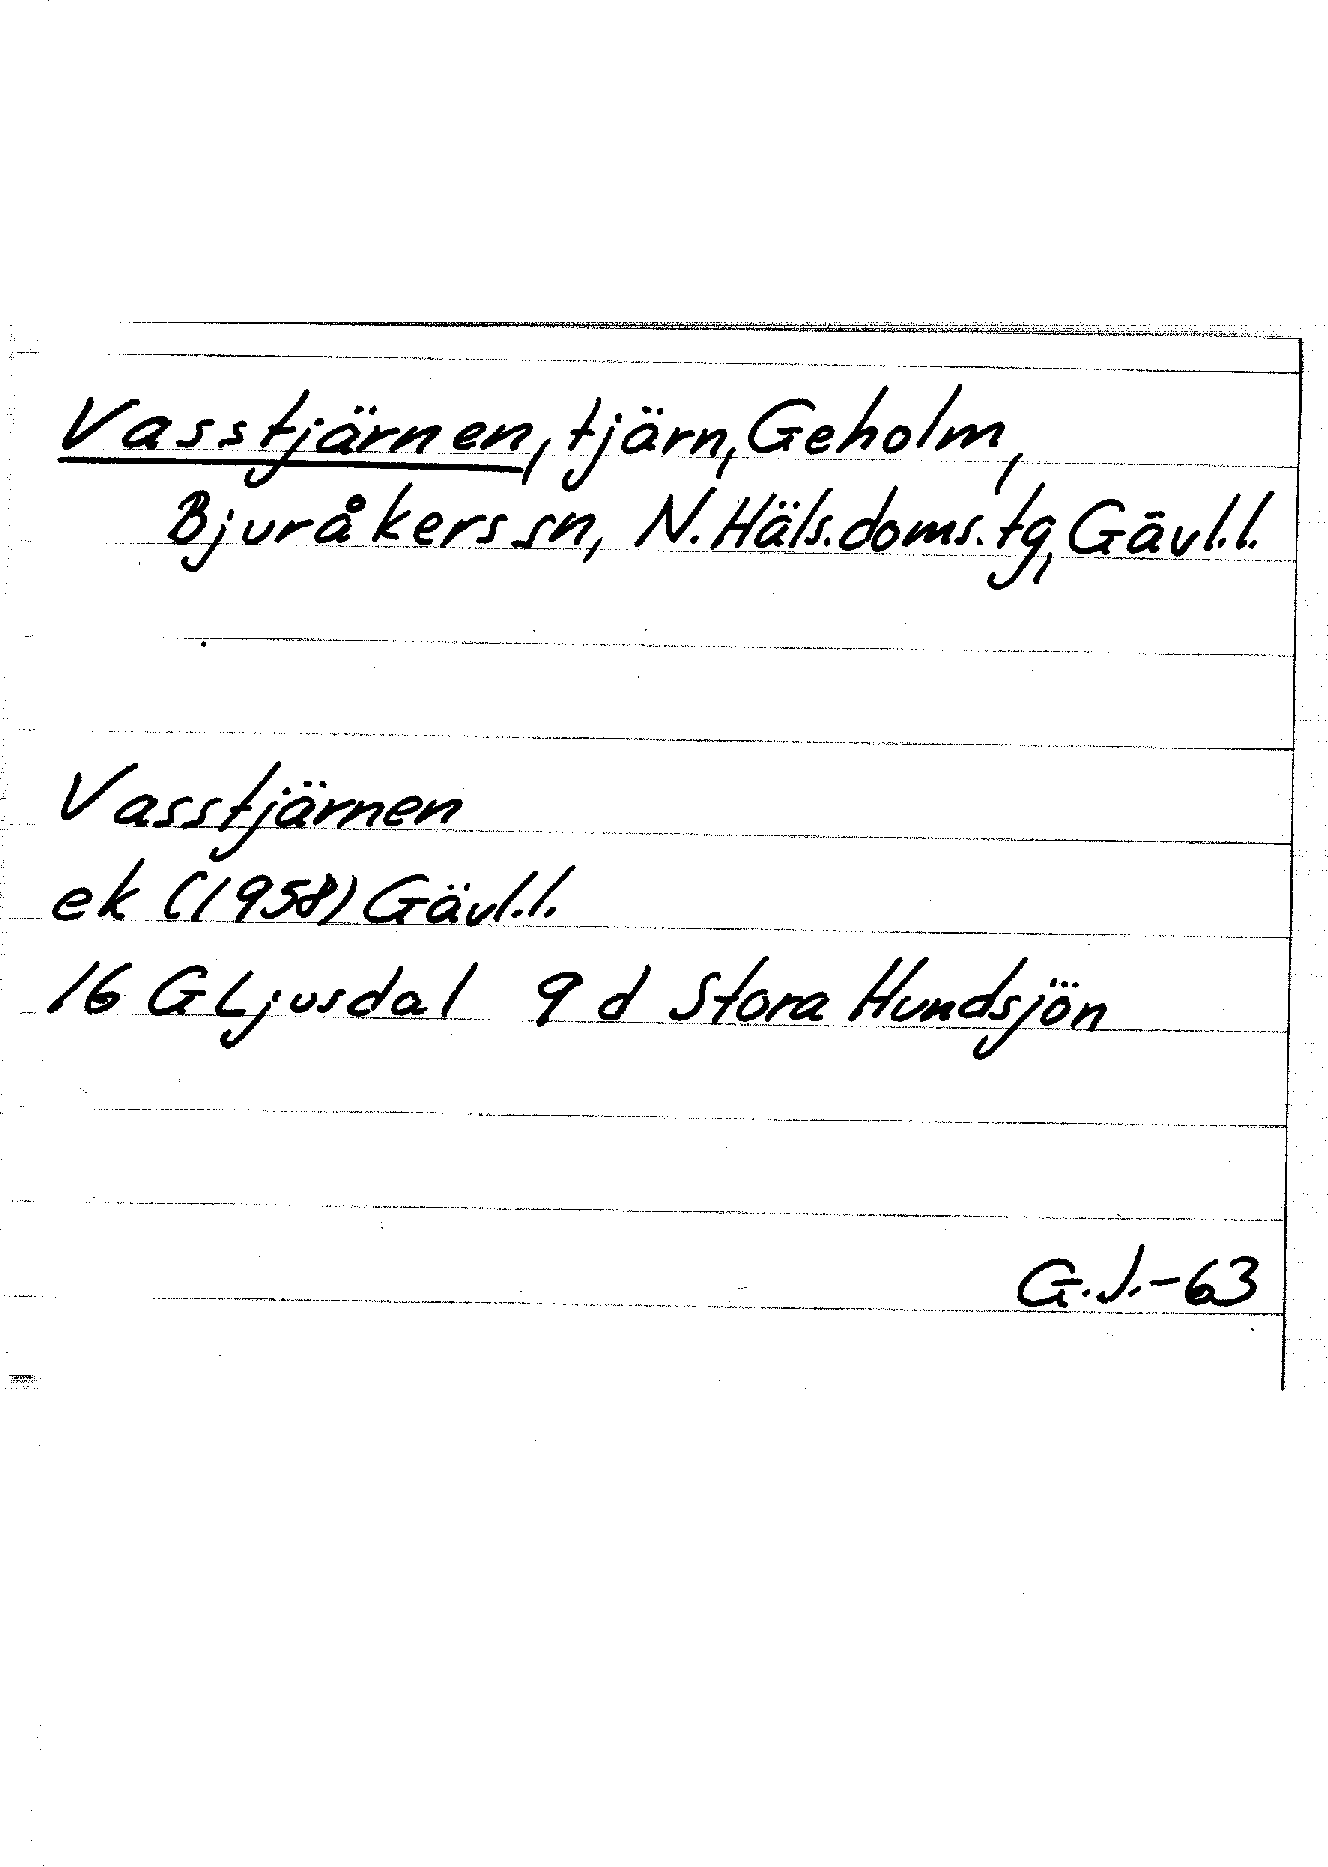 Vasstjärnen, tjärn, Geholm,
Bjuråkers sn, N. Häls. doms. tg, Gävl.l.
Vasstjärnen
ek (1958) Gävl.l.
16 G Ljusdal 9 d Stora Hundsjön
G.J.-63